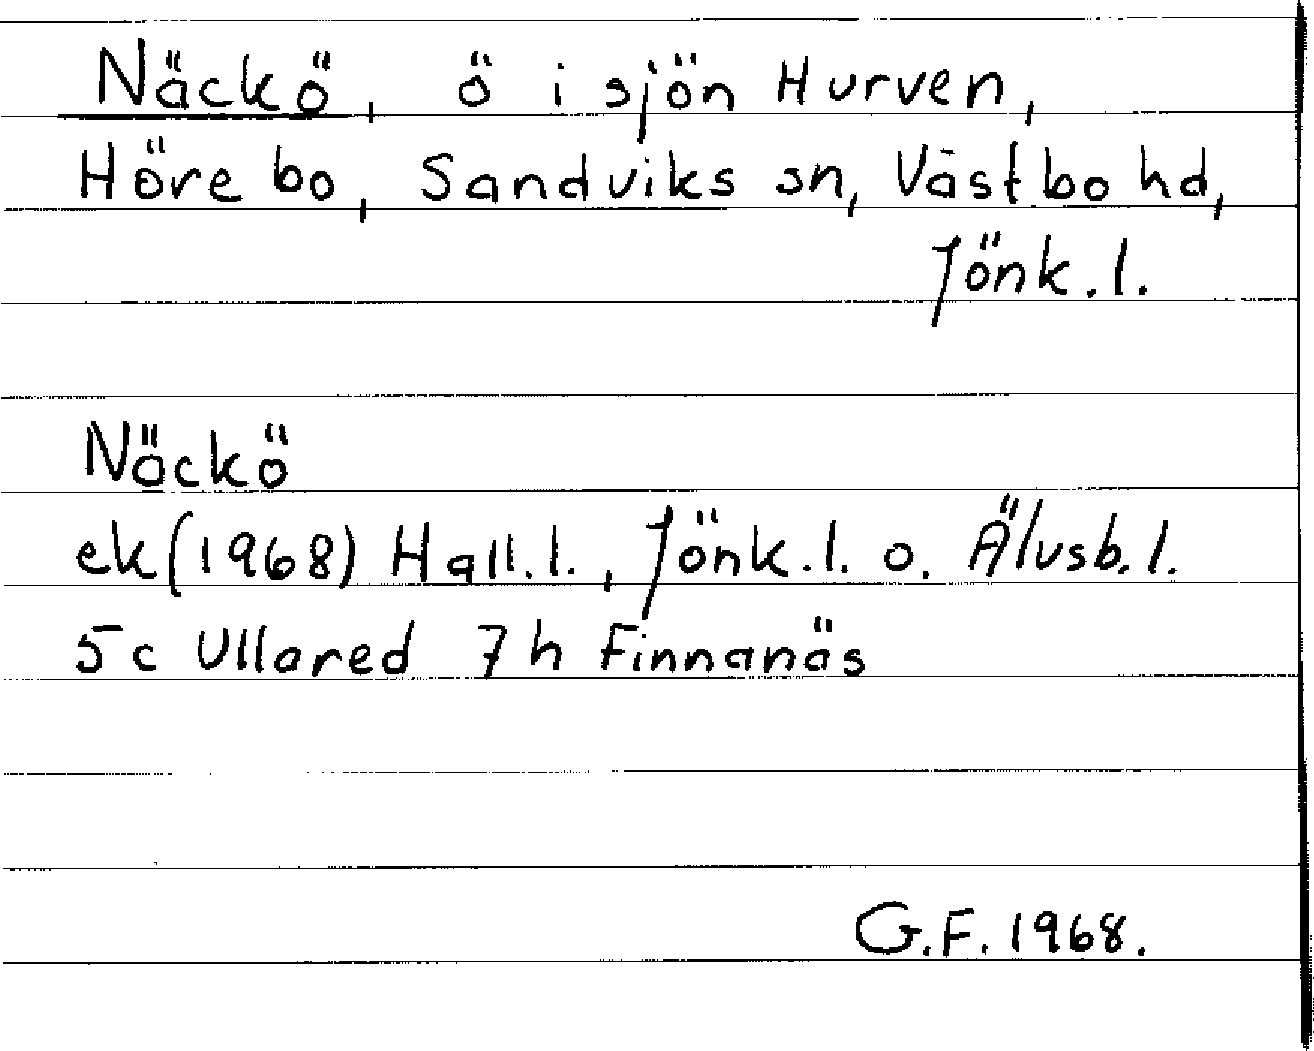 Näckö, ö i sjön Hurven,
Hörebo, Sandviks sn, Västbo hd,
Jönk.l.
Näckö
ek (1968) Hall.l., Jönk.l. o. Älvsb.l.
5c Ullared 7h Finnanäs
G.F. 1968.